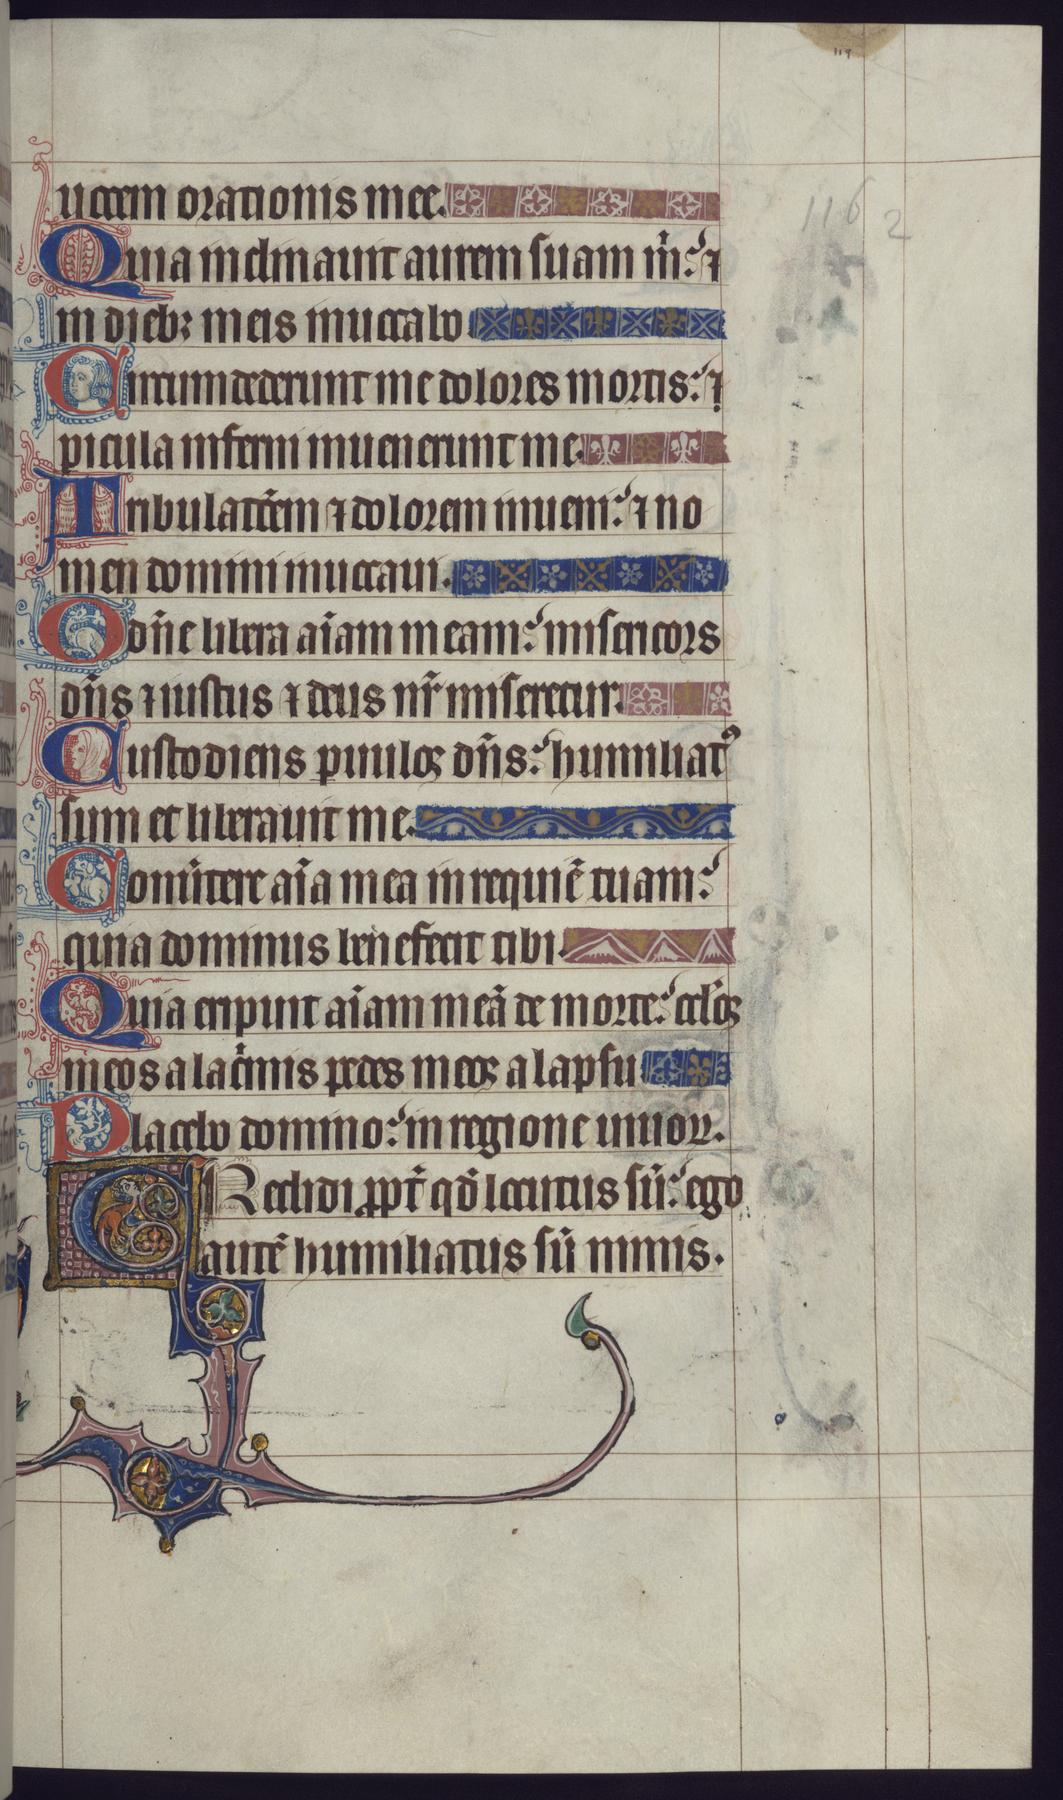 119
116
2
uocem orationis mee.
Quia inclinauit aurem suam m̄: ⁊
in dieb; meis inuocabo
Circumdederunt me dolores mortis: ⁊
picula inferni inuenerunt me.
Tribulatōem ⁊ dolorem inueni: ⁊ no
men domini inuocaui.
O dn̄e libera aīam meam: misericors
dn̄s ⁊ iustus ⁊ deus nr̄ miseretur.
Custodiens puuloꝝ dn̄s: humiliatꝰ
sum et liberauit me.
Conūtere aīa mea in requiē tuam:
quia dominus benefecit tibi.
Quia eripuit aīam meā de morte: oc̄loꝝ
meos a lac̄imis pedes meos a lapsu
Placebo domino: in regione uiuoꝝ.
CRedidi ꝓpt̄ qđ locutus sū: ego
autē humiliatus sū nimis.